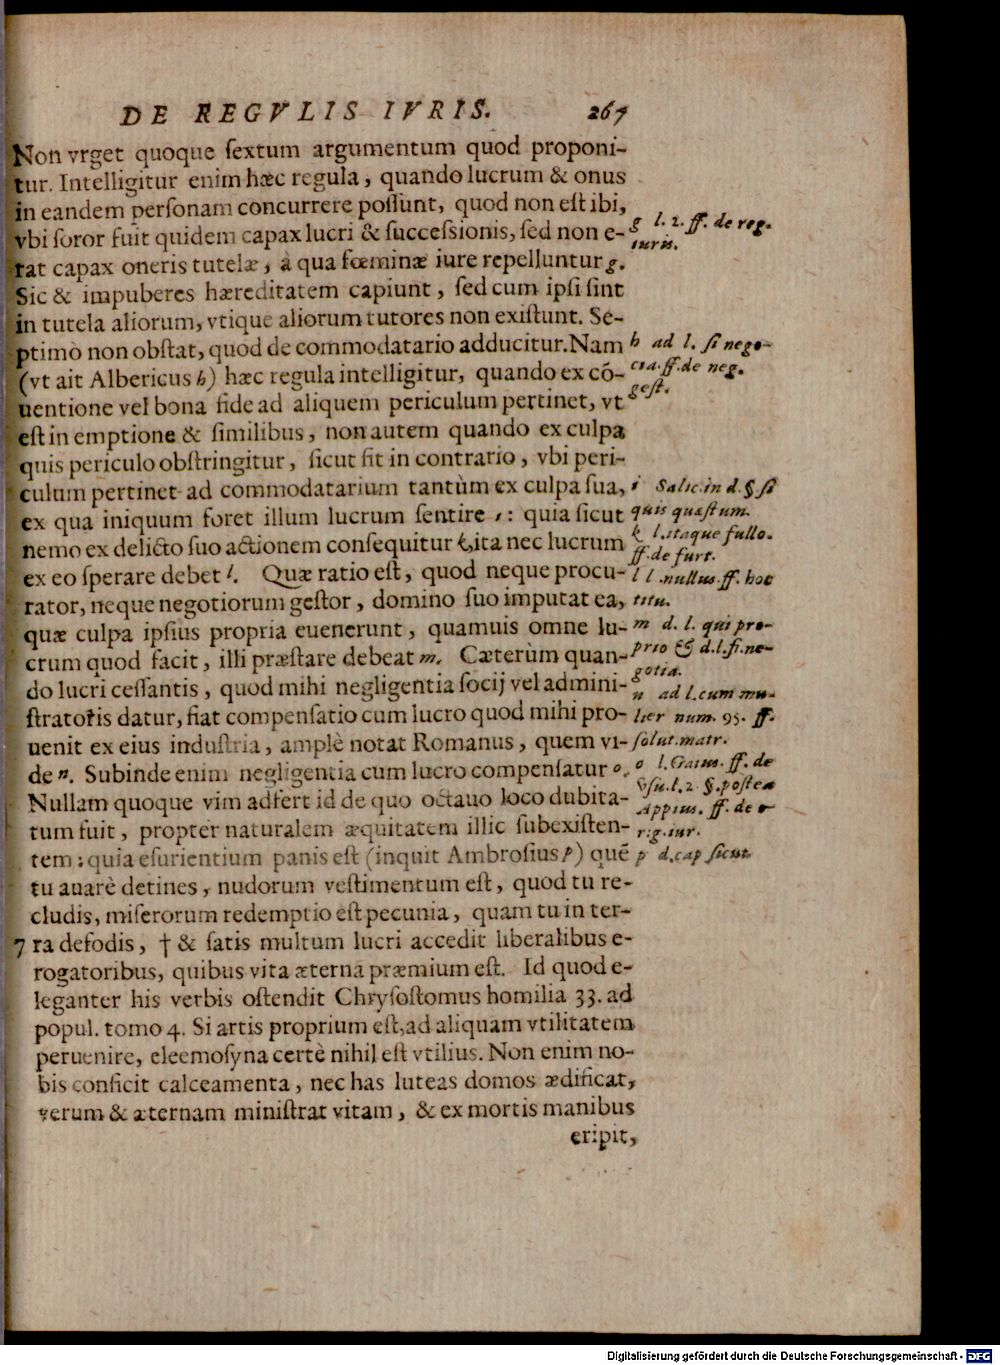 DE REGVLIS IVRIS. 267
Non vrget quoque ſextum argumentum quod proponi-
tur. Intelligitur enim hæc regula, quando lucrum & onus
in eandem perſonam concurrere poſſunt, quod non eſt ibi,
vbi ſoror fuit quidem capax lucri & ſucceſsionis, ſed non e-
rat capax oneris tutelæ, à qua fœminæ iure repelluntur g.
Sic & impuberes hæreditatem capiunt, ſed cum ipſi ſint
in tutela aliorum, vtique aliorum tutores non exiſtunt. Se-
ptimò non obſtat, quòd de commodatario adducitur. Nam
(vt ait Albericus h) hæc regula intelligitur, quando ex cō-
uentione vel bona fide ad aliquem periculum pertinet, vt
eſt in emptione & ſimilibus, non autem quando ex culpa
quis periculo obſtringitur, ſicut fit in contrario, vbi peri-
culum pertinet ad commodatarium tantùm ex culpa ſua,
ex qua iniquum foret illum lucrum ſentire i: quia ſicut
nemo ex delicto ſuo actionem conſequitur k, ita nec lucrum
ex eo ſperare debet l. Quæ ratio eſt, quod neque procu-
rator, neque negotiorum geſtor, domino ſuo imputat ea,
quæ culpa ipſius propria euenerunt, quamuis omne lu-
crum quod facit, illi præſtare debeat m. Cæterùm quan-
do lucri ceſſantis, quod mihi negligentia ſocij vel admini-
ſtratoris datur, fiat compenſatio cum lucro quod mihi pro-
uenit ex eius induſtria, amplè notat Romanus, quem vi-
de n. Subinde enim negligentia cum lucro compenſatur o.
Nullam quoque vim adfert id de quo octauo loco dubita-
tum fuit, propter naturalem æquitatem illic ſubexiſten-
tem: quia eſurientium panis eſt (inquit Ambroſius p) quē
tu auarè detines, nudorum veſtimentum eſt, quod tu re-
cludis, miſerorum redemptio eſt pecunia, quam tu in ter-
7 ra defodis, † & ſatis multum lucri accedit liberalibus e-
rogatoribus, quibus vita æterna præmium eſt. Id quod e-
leganter his verbis oſtendit Chryſoſtomus homilia 33. ad
popul. tomo 4. Si artis proprium eſt, ad aliquam vtilitatem
peruenire, eleemoſyna certè nihil eſt vtilius. Non enim no-
bis conficit calceamenta, nec has luteas domos ædificat,
verum & æternam miniſtrat vitam, & ex mortis manibus
eripit,
g l. 2. ff. de reg.
iuris.
h ad l. ſi nego-
cia. ff. de neg.
geſt.
i Salic. in d. § ſi
quis quæſtum.
k l. itaque fullo.
ff. de furt.
l l. nullus. ff. hoc
titu.
m d. l. qui pro-
prio & d. l. ſi ne-
gotia.
n ad l. cum mu-
lier num. 95. ff.
ſolut. matr.
o l. Gaius. ff. de
vſu. l. 2. §. poſtea
Appius. ff. de o-
rig. iur.
p d. cap ſicut.
Digitalisierung gefördert durch die Deutsche Forschungsgemeinschaft - DFG